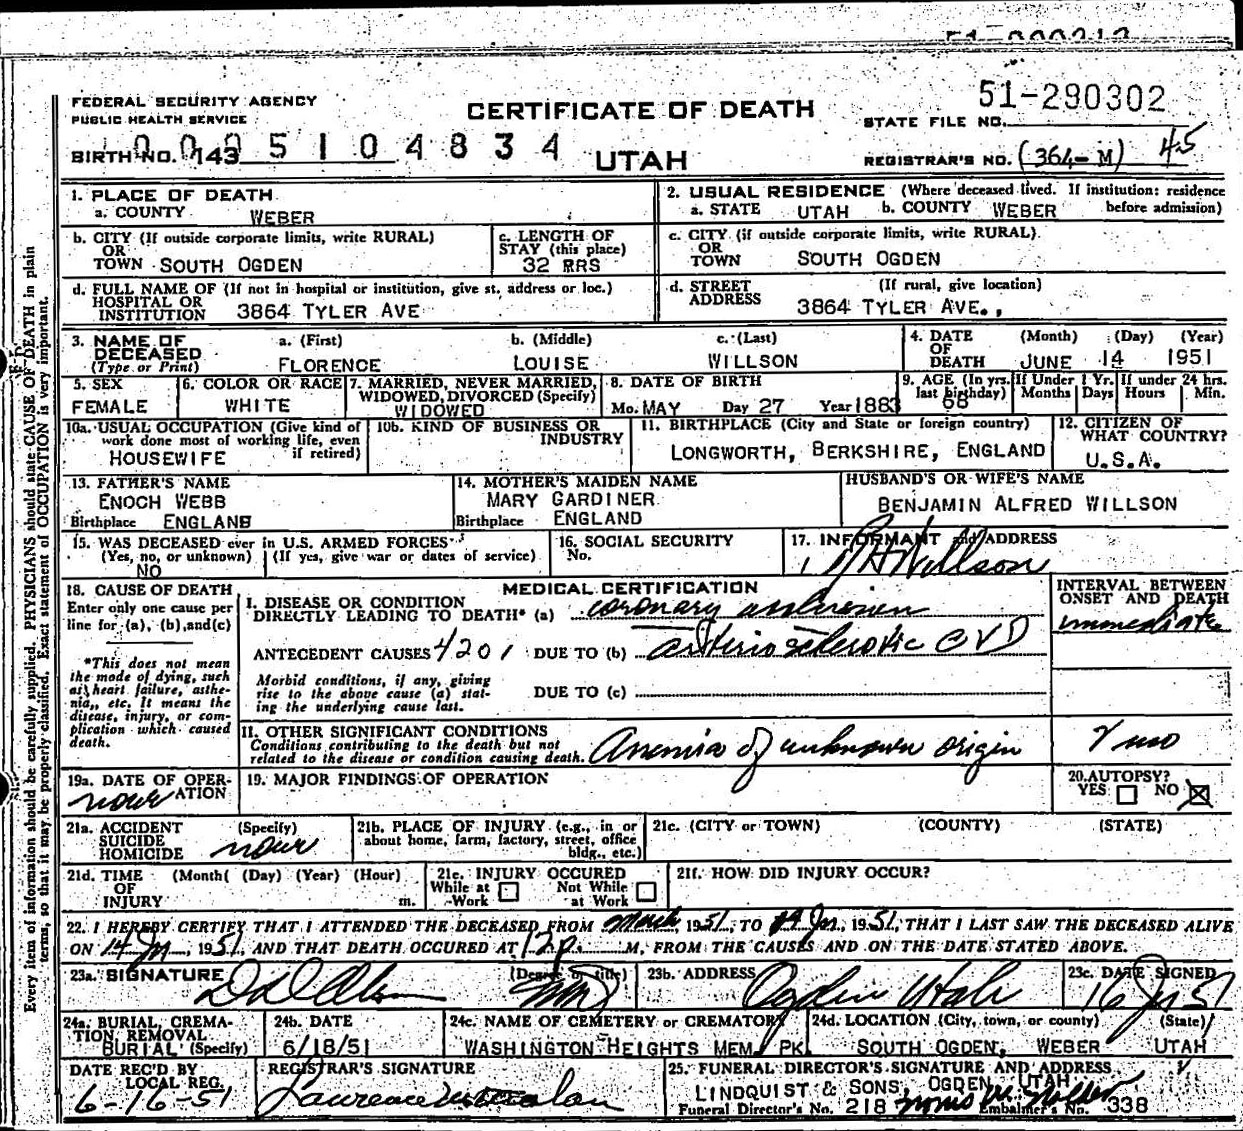 FEDERAL SECURITY AGENCY
PUBLIC HEALTH SERVICE
CERTIFICATE OF DEATH
51-290302
STATE FILE NO.
BIRTH NO. 143
005104834
UTAH
REGISTRAR'S NO. (364-M) 45
Every item of information should be carefully supplied. PHYSICIANS should state CAUSE OF DEATH in plain
terms, so that it may be properly classified. Exact statement of OCCUPATION is very important.
1. PLACE OF DEATH
a. COUNTY WEBER
2. USUAL RESIDENCE (Where deceased lived. If institution: residence
a. STATE UTAH b. COUNTY WEBER before admission)
b. CITY (If outside corporate limits, write RURAL)
OR
TOWN SOUTH OGDEN
c. LENGTH OF
STAY (this place)
32 RRS
c. CITY (if outside corporate limits, write RURAL).
OR
TOWN SOUTH OGDEN
d. FULL NAME OF (If not in hospital or institution, give st. address or loc.)
HOSPITAL OR
INSTITUTION 3864 TYLER AVE
d. STREET (If rural, give location)
ADDRESS 3864 TYLER AVE.,
3. NAME OF a. (First) b. (Middle) c. (Last)
DECEASED
(Type or Print) FLORENCE LOUISE WILLSON
4. DATE (Month) (Day) (Year)
OF
DEATH JUNE 14 1951
5. SEX
FEMALE
6. COLOR OR RACE
WHITE
7. MARRIED, NEVER MARRIED,
WIDOWED, DIVORCED (Specify)
WIDOWED
8. DATE OF BIRTH
Mo. MAY Day 27 Year 1883
9. AGE (In yrs.
last birthday)
68
If Under 1 Yr.
Months Days
If under 24 hrs.
Hours Min.
10a. USUAL OCCUPATION (Give kind of
work done most of working life, even
if retired)
HOUSEWIFE
10b. KIND OF BUSINESS OR
INDUSTRY
11. BIRTHPLACE (City and State or foreign country)
LONGWORTH, BERKSHIRE, ENGLAND
12. CITIZEN OF
WHAT COUNTRY?
U.S.A.
13. FATHER'S NAME
ENOCH WEBB
Birthplace ENGLANB
14. MOTHER'S MAIDEN NAME
MARY GARDINER
Birthplace ENGLAND
HUSBAND'S OR WIFE'S NAME
BENJAMIN ALFRED WILLSON
15. WAS DECEASED ever in U.S. ARMED FORCES
(Yes, no, or unknown) (If yes, give war or dates of service)
NO
16. SOCIAL SECURITY
No.
17. INFORMANT and ADDRESS
Willson
18. CAUSE OF DEATH
Enter only one cause per
line for (a), (b), and (c)
*This does not mean
the mode of dying, such
as heart failure, asthe-
nia,, etc. It means the
disease, injury, or com-
plication which caused
death.
MEDICAL CERTIFICATION
I. DISEASE OR CONDITION
DIRECTLY LEADING TO DEATH* (a) coronary occlusion
ANTECEDENT CAUSES 4201 DUE TO (b) arteriosclerotic CVD
Morbid conditions, if any, giving
rise to the above cause (a) stat-
ing the underlying cause last.
DUE TO (c)
INTERVAL BETWEEN
ONSET AND DEATH
immediate
II. OTHER SIGNIFICANT CONDITIONS
Conditions contributing to the death but not
related to the disease or condition causing death.
Anemia of unknown origin
mo
19a. DATE OF OPER-
ATION
none
19. MAJOR FINDINGS OF OPERATION
20. AUTOPSY?
YES NO
21a. ACCIDENT (Specify)
SUICIDE
HOMICIDE none
21b. PLACE OF INJURY (e.g., in or
about home, farm, factory, street, office
bldg., etc.)
21c. (CITY or TOWN) (COUNTY) (STATE)
21d. TIME (Month( (Day) (Year) (Hour)
OF
INJURY m.
21e. INJURY OCCURED
While at Not While
Work at Work
21f. HOW DID INJURY OCCUR?
22. I HEREBY CERTIFY THAT I ATTENDED THE DECEASED FROM March, 1951, TO 14 Jn., 1951, THAT I LAST SAW THE DECEASED ALIVE
ON 14 Jn, 1951, AND THAT DEATH OCCURED AT 12 p. M, FROM THE CAUSES AND ON THE DATE STATED ABOVE.
23a. SIGNATURE (Degree or title) MD
23b. ADDRESS Ogden Utah
23c. DATE SIGNED
16 Jn 51
24a. BURIAL, CREMA-
TION, REMOVAL
BURIAL (Specify)
24b. DATE
6/18/51
24c. NAME OF CEMETERY or CREMATORY
WASHINGTON HEIGHTS MEM. PK.
24d. LOCATION (City, town, or county) (State)
SOUTH OGDEN, WEBER UTAH
DATE REC'D BY
LOCAL REG.
6-16-51
REGISTRAR'S SIGNATURE
Lawrence
25. FUNERAL DIRECTOR'S SIGNATURE AND ADDRESS
LINDQUIST & SONS, OGDEN, UTAH
Funeral Director's No. 218 Embalmer's No. 338